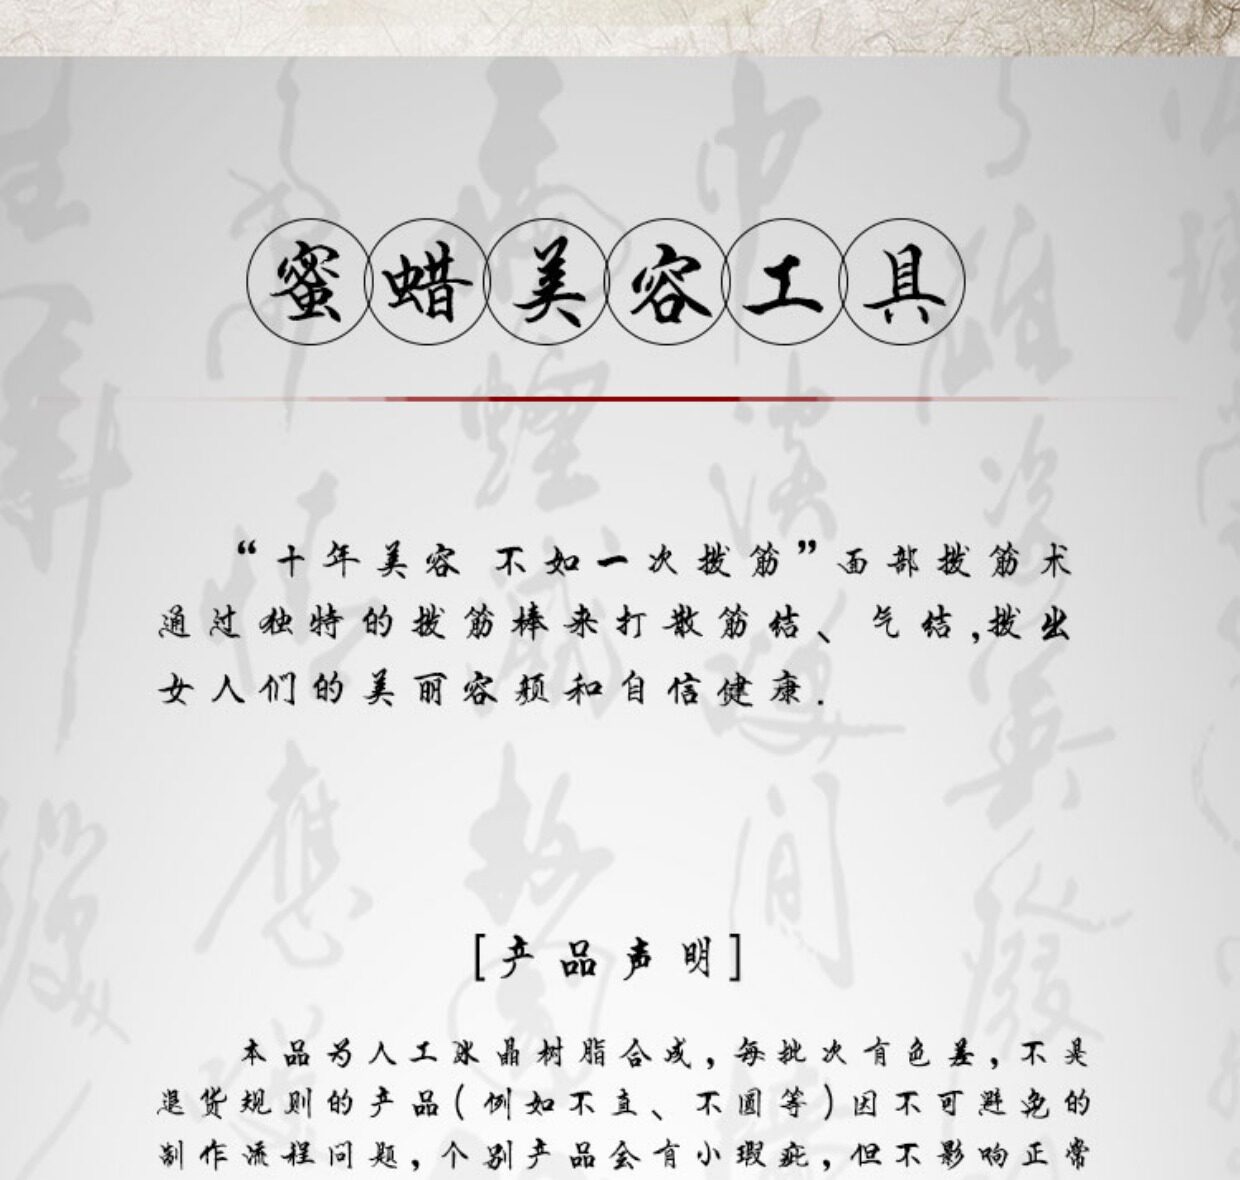 蜜蜡美容工具
“十年美容 不如一次拨筋”面部拨筋术
通过独特的拨筋棒来打散筋结、气结,拨出
女人们的美丽容颜和自信健康.
[产品声明]
本品为人工冰晶树脂合成,每批次有色差,不是
退货规则的产品(例如不直、不圆等)因不可避免的
制作流程问题,个别产品会有小瑕疵,但不影响正常